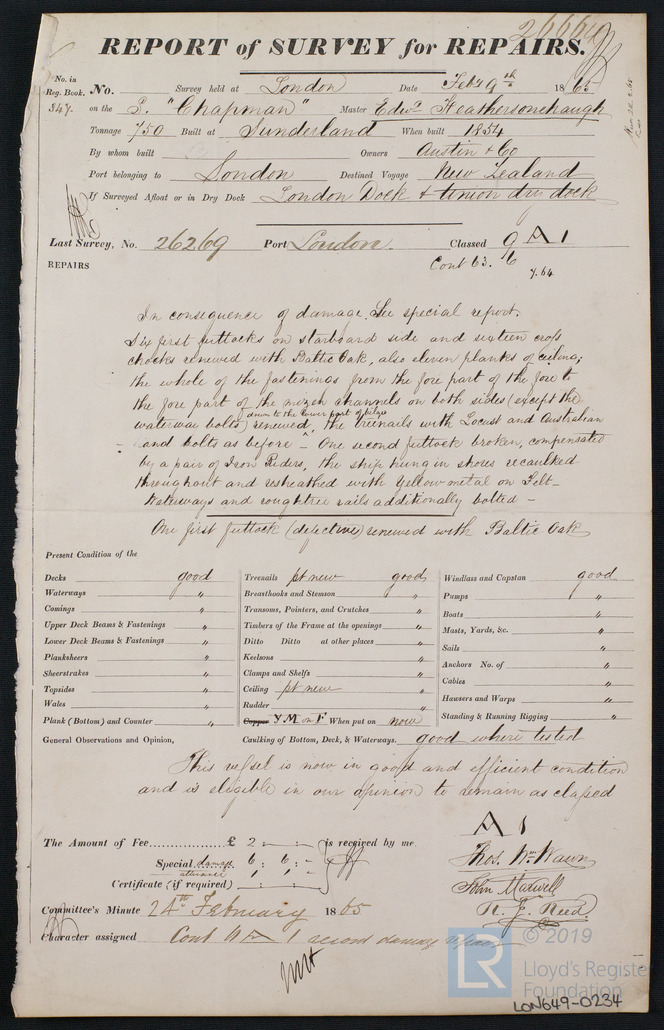 26664
REPORT of SURVEY for REPAIRS.
No. in Reg. Book. No. Survey held at London Date Feby 9th 1865
847. on the S. "Chapman" Master Edwd Featherstonehaugh
Tonnage 750 Built at Sunderland When built 1854
By whom built Owners Austin & Co
Port belonging to London Destined Voyage New Zealand
If Surveyed Afloat or in Dry Dock London Dock & Union dry dock
Last Survey, No. 26269 Port London. Classed 9 A 1
REPAIRS Cont 63. 6 7.64
In consequence of damage. See special report.
Six first futtocks on starboard side and sixteen cross
chocks renewed with Baltic Oak, also eleven planks of ceiling;
the whole of the fastenings from the fore part of the fore to
the fore part of the mizen channels on both sides (except the
down to the lower part of bilges
waterway bolts) renewed, the treenails with Locust and Australian
and bolts as before - One second futtock broken, compensated
by a pair of Iron Riders, the ship hung in shores recaulked
throughout and resheathed with Yellow metal on Felt -
Waterways and roughtree rails additionally bolted -
One first futtock (defective) renewed with Baltic Oak
Present Condition of the
Decks good Treenails pt new good Windlass and Capstan good
Waterways " Breasthooks and Stemson " Pumps "
Comings " Transoms, Pointers, and Crutches " Boats "
Upper Deck Beams & Fastenings " Timbers of the Frame at the openings " Masts, Yards, &c. "
Lower Deck Beams & Fastenings " Ditto Ditto at other places " Sails "
Planksheers " Keelsons " Anchors No. of "
Sheerstrakes " Clamps and Shelfs " Cables "
Topsides " Ceiling pt new " Hawsers and Warps "
Wales " Rudder " Standing & Running Rigging "
Plank (Bottom) and Counter " Copper Y.M on F When put on now
General Observations and Opinion, Caulking of Bottom, Deck, & Waterways. good where tested
This vessel is now in good and efficient condition
and is eligible in our opinion to remain as classed
A 1
The Amount of Fee £ 2 : - : - is received by me.
Special damage 6 : 6 : -
Certificate (if required) : :
Thos. Wm Wawn
John Maxwell
H. J. Reed
Committee's Minute 24th February 1865
Character assigned Cont A 1 record damage repairs
LR © 2019
Lloyd's Register
Foundation
LON649-0234